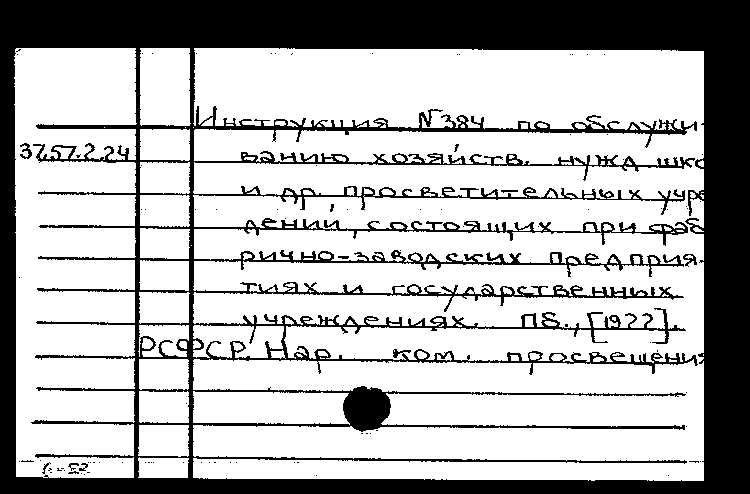 Инструкция №384 по обслужи-
37.57.2.24 ванию хозяйств. нужд шко
и др. просветительных учре
дений, состоящих при фаб
рично-заводских предприя-
тиях и государственных
учреждениях. Пб., [1922].
РСФСР. Нар. ком. просвещения